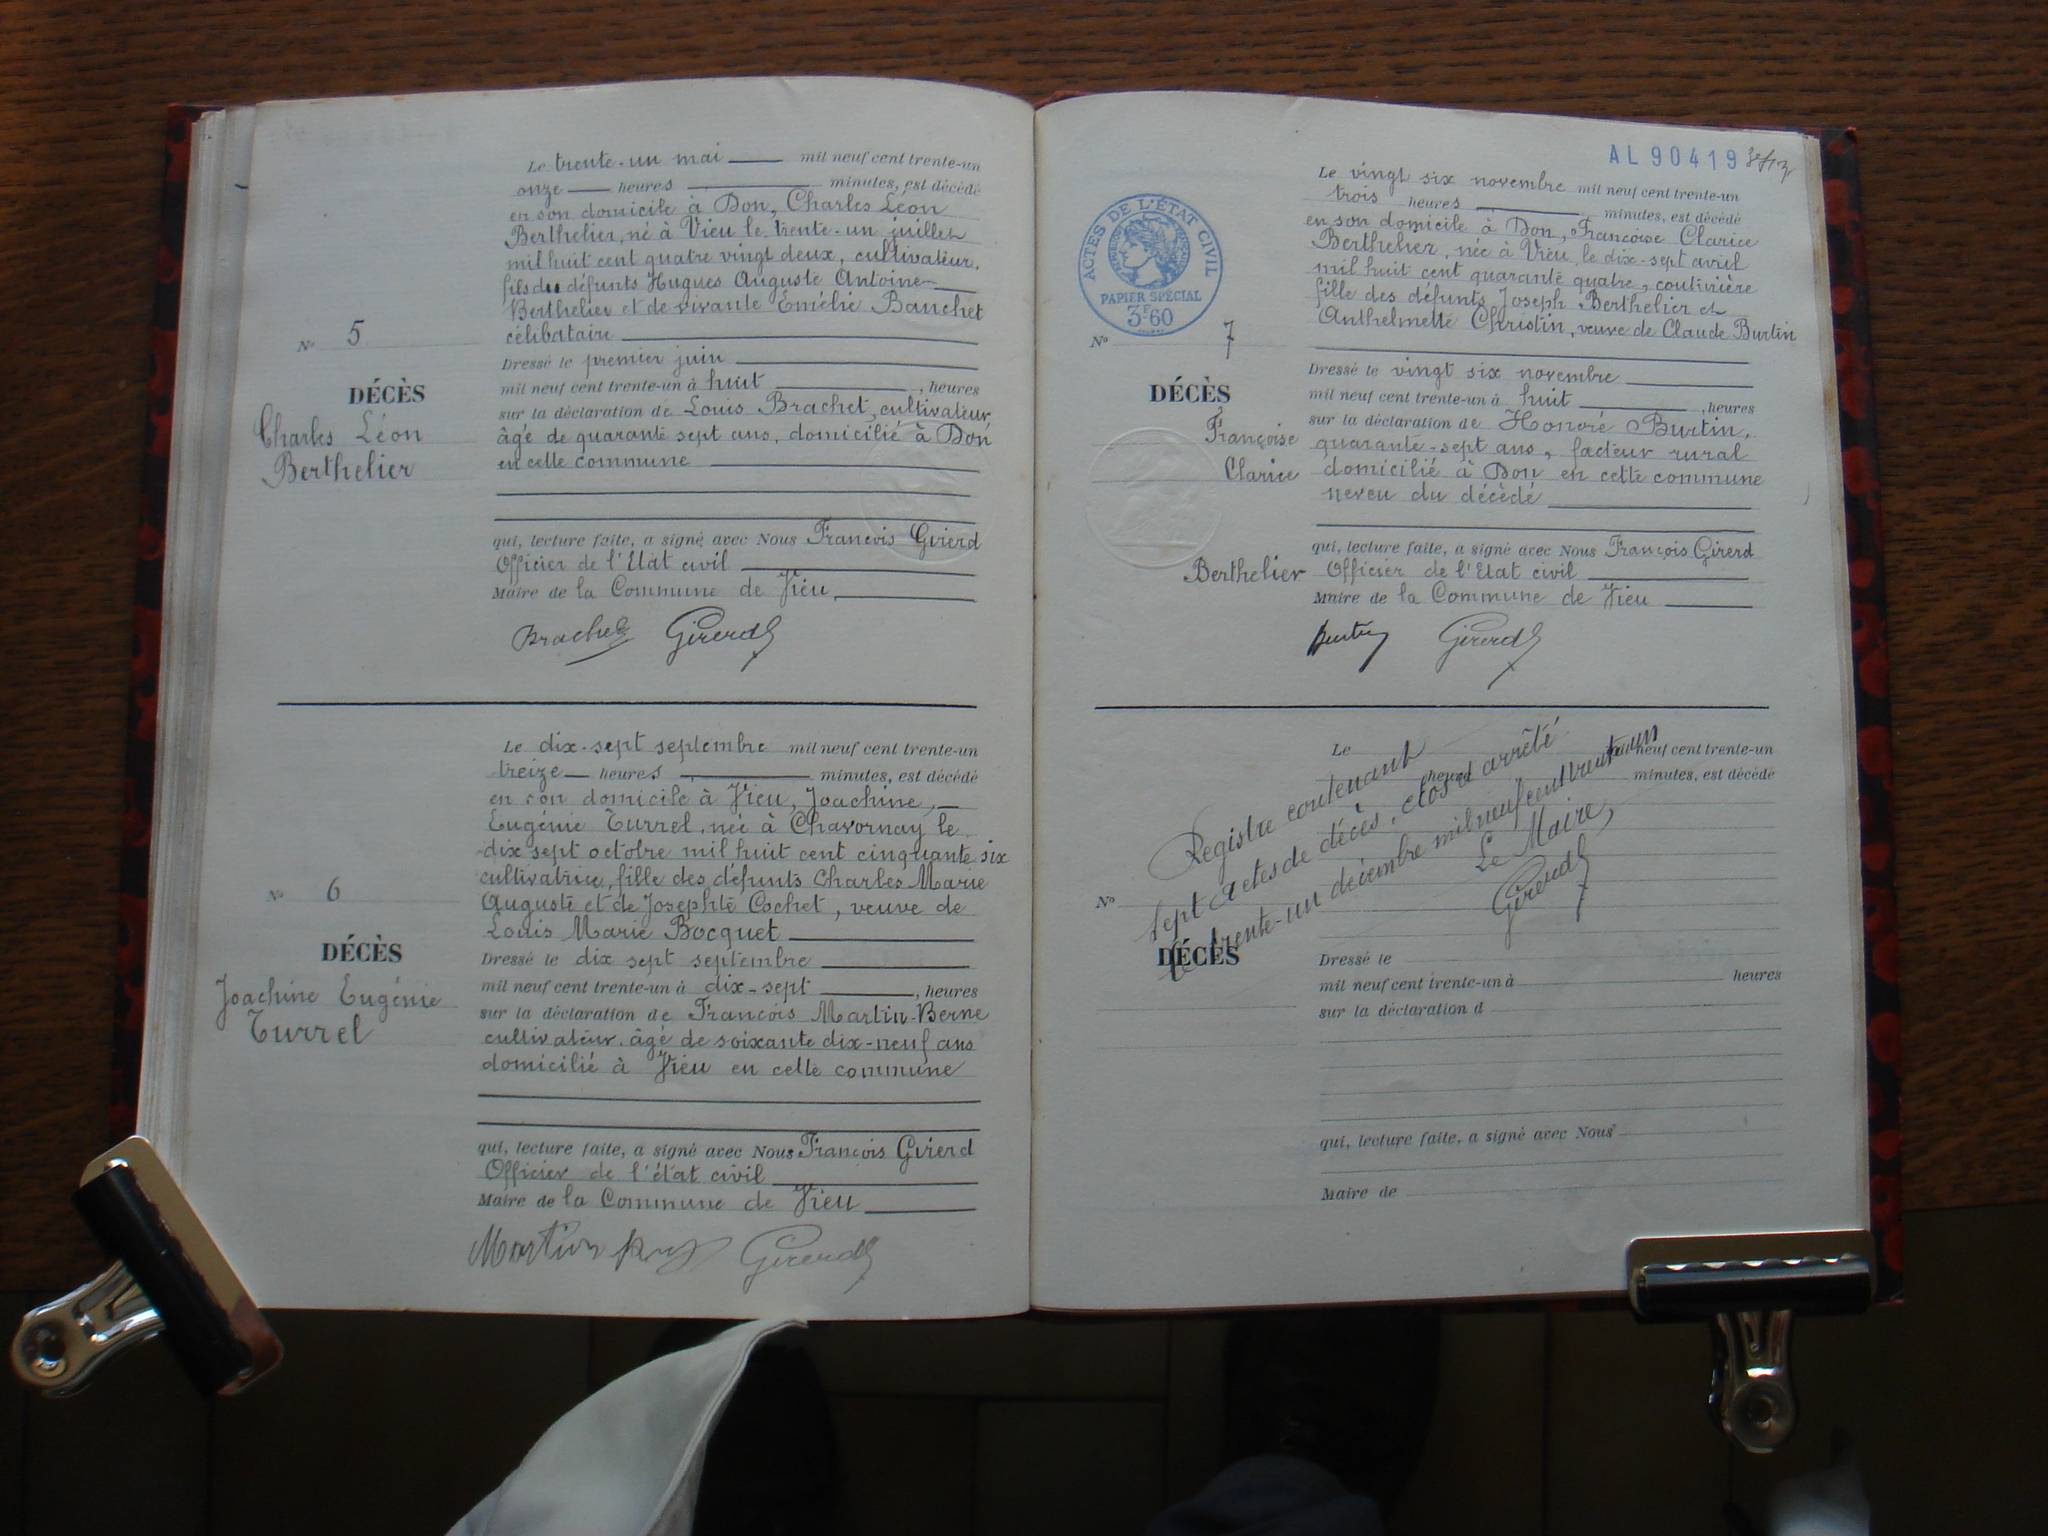 Le trente-un mai mil neuf cent trente-un
onze heures minutes, est décédé
en son domicile à Don, Charles Léon
Berthelier, né à Vieu le trente-un juillet
mil huit cent quatre vingt deux, cultivateur,
fils des défunts Hugues Auguste Antoine
Berthelier et de vivante Emélie Banchet
célibataire
Nº 5
DÉCÈS
Charles Léon
Berthelier
Dressé le premier juin
mil neuf cent trente-un à huit, heures
sur la déclaration de Louis Brachet, cultivateur,
âgé de quarante sept ans, domicilié à Don
en cette commune
qui, lecture faite, a signé avec Nous Francois Girerd
Officier de l'Etat civil
Maire de la Commune de Vieu,
Brachet Girerd
Le dix-sept septembre mil neuf cent trente-un
treize heures minutes, est décédé
en son domicile à Vieu, Joachine,
Eugénie Turrel, née à Chavornay le
dix sept octobre mil huit cent cinquante six
cultivatrice, fille des défunts Charles Marie
Auguste et de Josephte Cochet, veuve de
Louis Marie Bocquet
Nº 6
DÉCÈS
Joachine Eugénie
Turrel
Dressé le dix sept septembre
mil neuf cent trente-un à dix-sept, heures
sur la déclaration de Francois Martin-Berne
cultivateur, âgé de soixante dix-neuf ans
domicilié à Vieu en cette commune
qui, lecture faite, a signé avec Nous Francois Girerd
Officier de l'état civil
Maire de la Commune de Vieu
Martin Girerd
AL 90419
ACTES DE L'ÉTAT CIVIL
RÉPUBLIQUE FRANÇAISE
PAPIER SPÉCIAL
3F60
Le vingt six novembre mil neuf cent trente-un
trois heures minutes, est décédé
en son domicile à Don, Francoise Clarice
Berthelier, née à Vieu, le dix-sept avril
mil huit cent quarante quatre, couturière
fille des défunts Joseph Berthelier et
Anthelmette Christin, veuve de Claude Burtin
Nº 7
DÉCÈS
Françoise
Clarice
Berthelier
Dressé le vingt six novembre
mil neuf cent trente-un à huit, heures
sur la déclaration de Honoré Burtin,
quarante-sept ans, facteur rural
domicilié à Don en cette commune
neveu du décédé
qui, lecture faite, a signé avec Nous François Girerd
Officier de l'Etat civil
Maire de la Commune de Vieu
Burtin Girerd
Le mil neuf cent trente-un
heures minutes, est décédé
Registre contenant
sept actes de décès, clos et arrêté
le trente-un décembre mil neuf cent trente un
Le Maire,
Girerd
Nº
DÉCÈS
Dressé le
mil neuf cent trente-un à heures
sur la déclaration d
qui, lecture faite, a signé avec Nous
Maire de